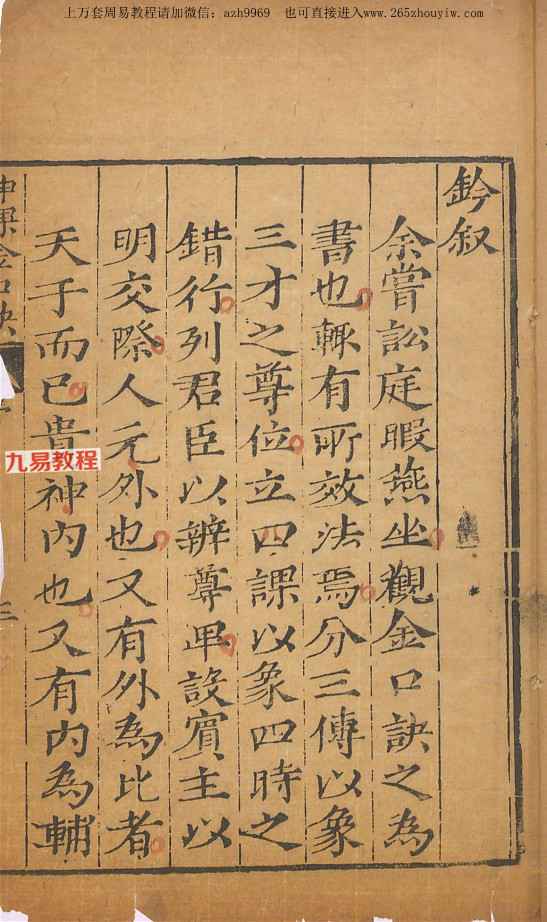 上万套周易教程请加微信：azh9969 也可直接进入www.265zhouyiw.com
鈐叙
余嘗訟庭暇燕坐觀金口訣之為
書也輒有所效法焉分三傳以象
三才之尊位立四課以象四時之
錯行列君臣以辨尊卑設賓主以
明交際人元外也又有外為比者
天子而已貴神內也又有內為輔
神
金口訣
九易教程